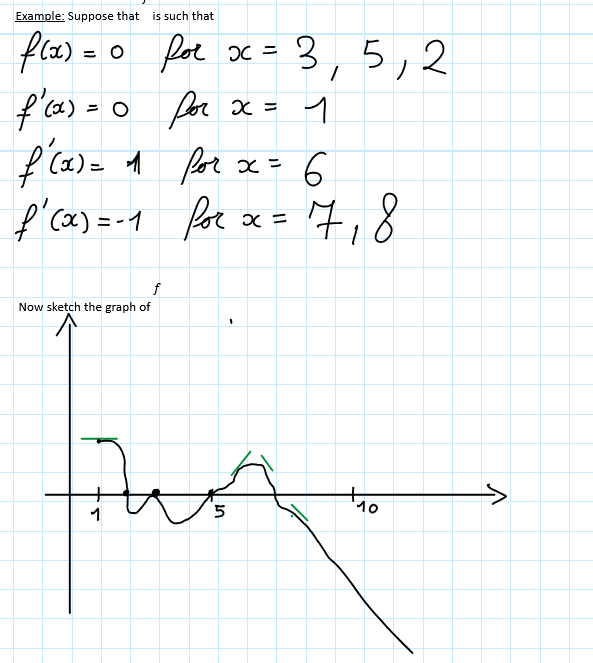 Example: Suppose that is such that
f(x) = 0 for x = 3, 5, 2
f'(x) = 0 for x = 1
f'(x) = 1 for x = 6
f'(x) = -1 for x = 7, 8
f
Now sketch the graph of
1
5
10